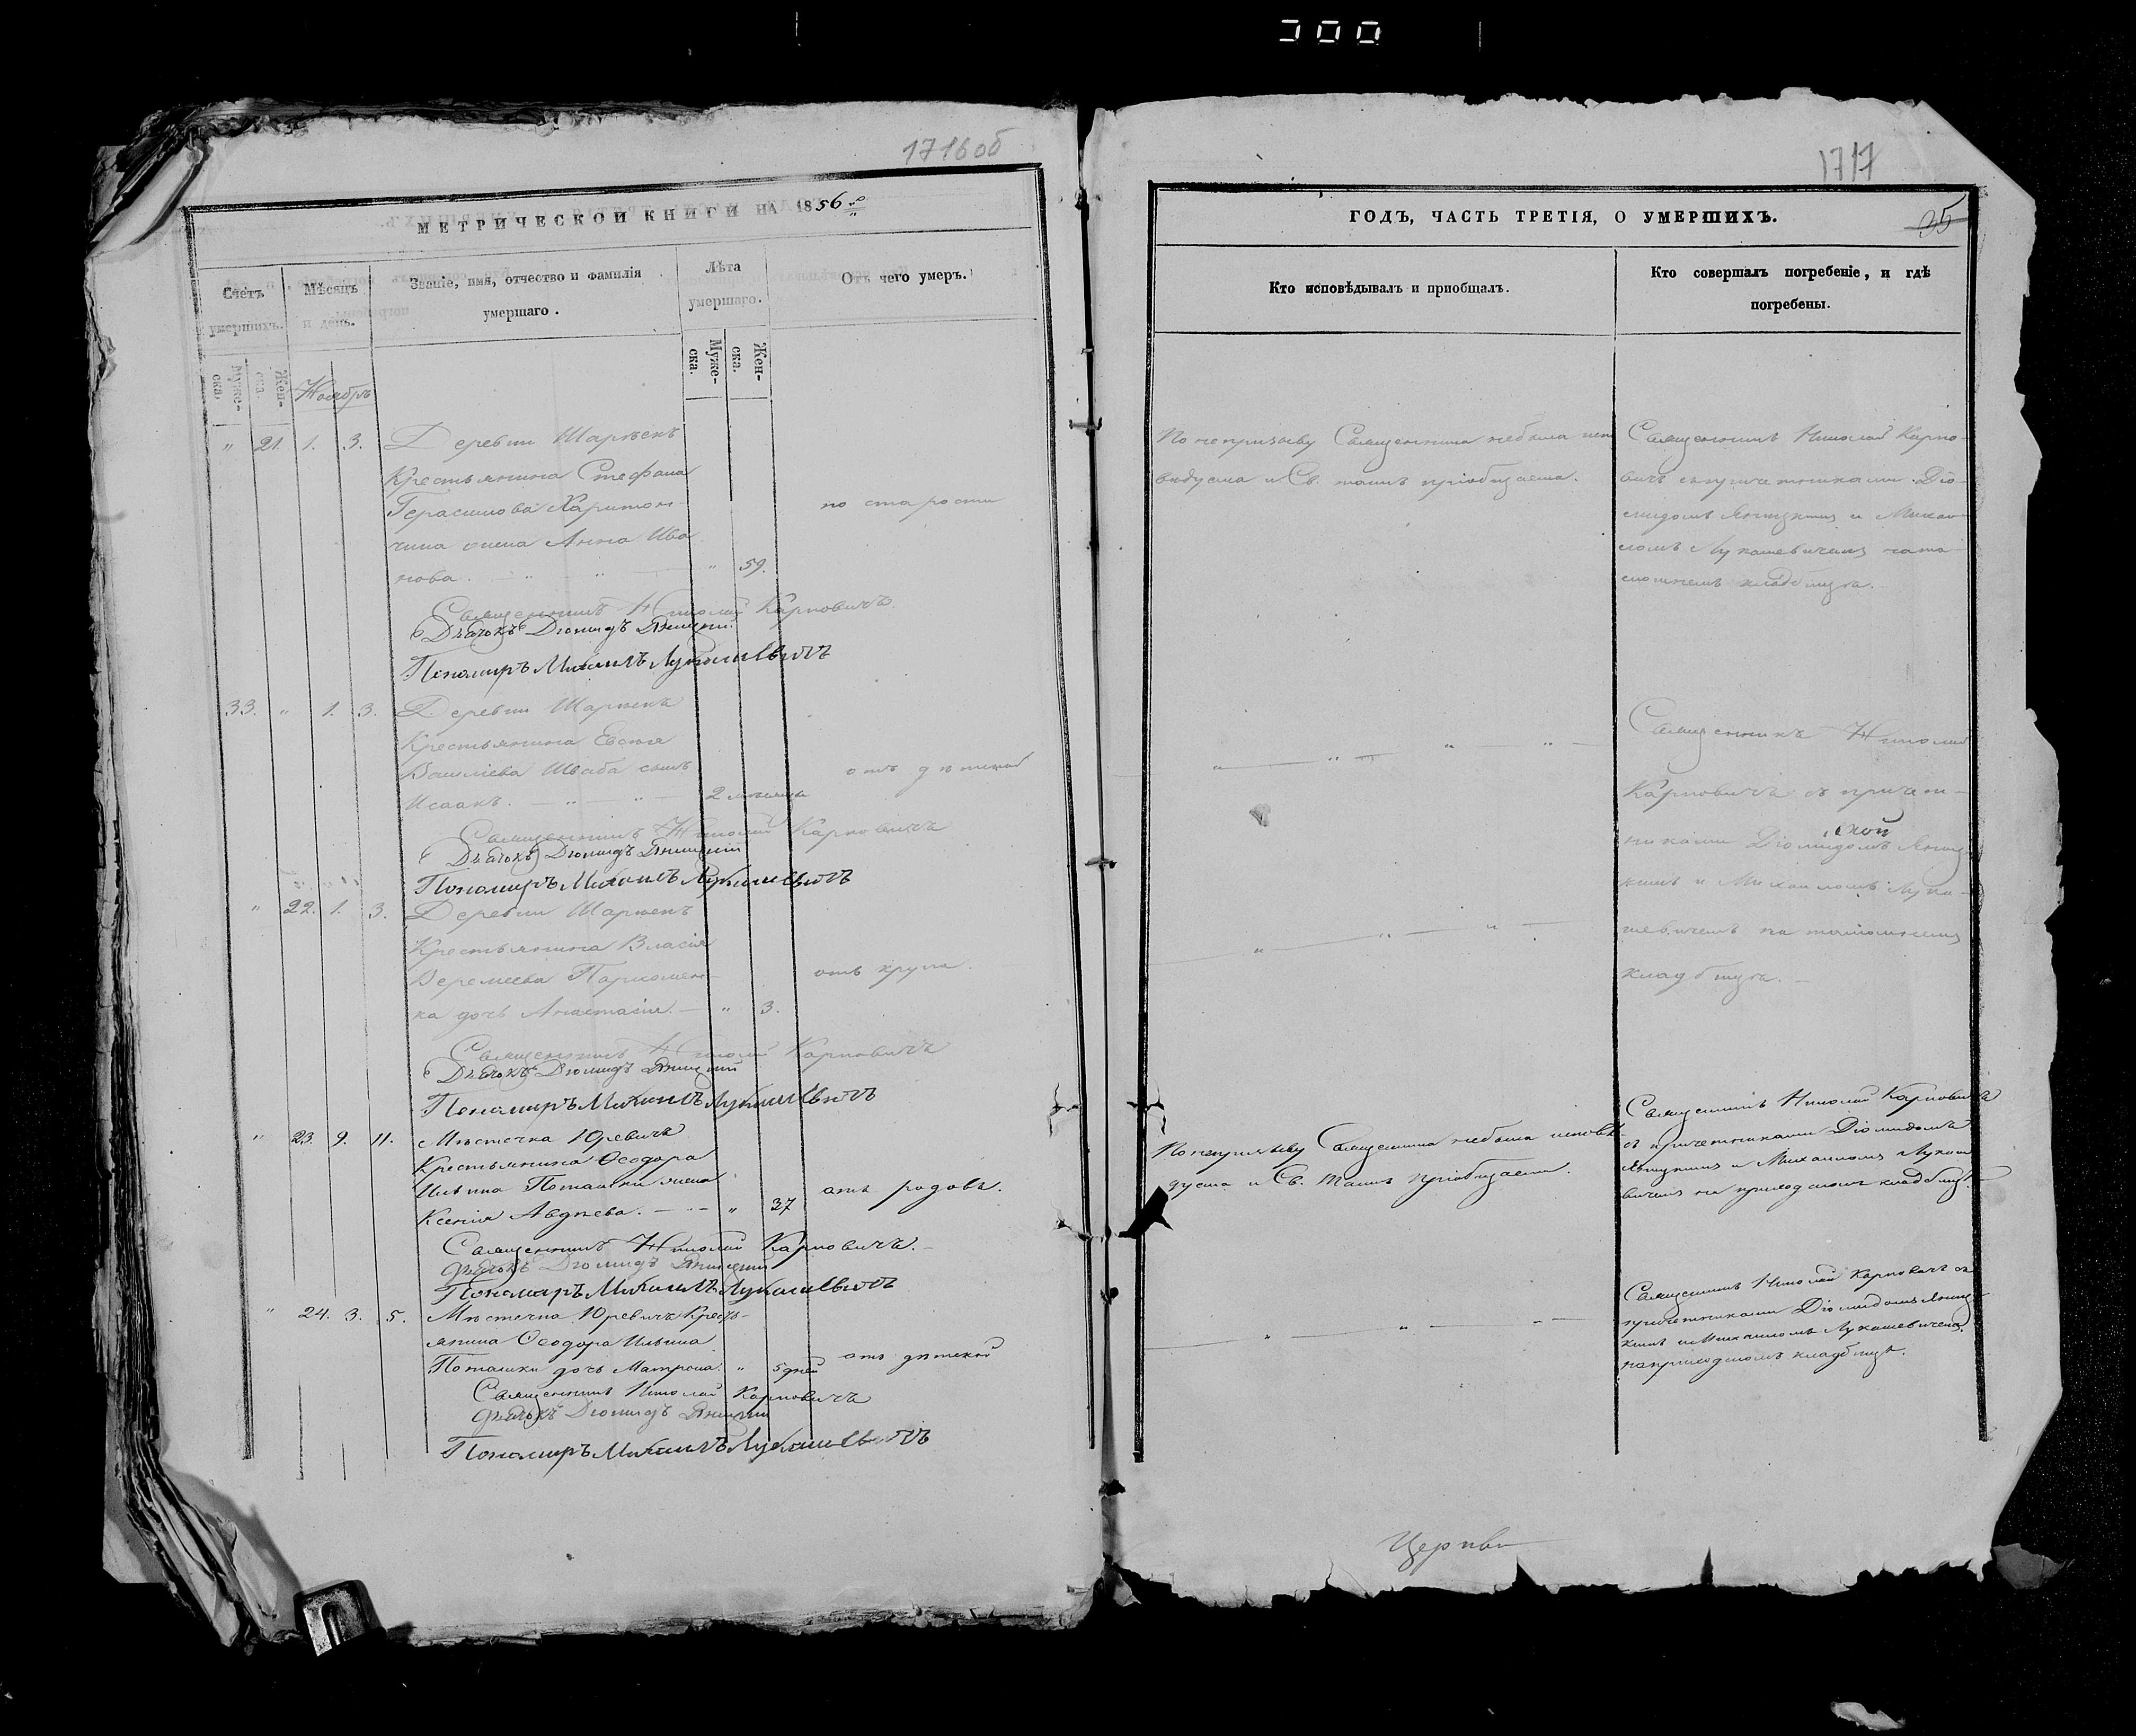 1716об
МЕТРИЧЕСКОЙ КНИГИ НА 1856го
Счетъ умершихъ.
Мѣсяцъ и день.
Званіе, имя, отчество и фамилія умершаго.
Лѣта умершаго.
Отъ чего умеръ.
Муже-ска.
Жен-ска.
Ноябрь
Муже-ска.
Жен-ска.
" 21. 1. 3. Деревни
Крестьянина Стефана
Герасимова Харитон-
чика жена Анна Ива
нова. " " " 59.
по старости
Священникъ Николай Карповичъ
Дьячокъ Діомидъ Яницкій
Пономаръ Михаилъ Лукашевичъ
33. " 1. 3. Деревни
Крестьянина
Василіева Шваба сынъ
Исаакъ. " " 2 мѣсяца
отъ дѣтской
Священникъ Николай Карповичъ
Дьячокъ Діомидъ Яницкій
Пономаръ Михаилъ Лукашевичъ
" 22. 1. 3. Деревни
Крестьянина Власія
Веремеева Пархомен-
ка дочь Анастасія. " 3.
отъ крупа.
Священникъ Николай Карповичъ
Дьячокъ Діомидъ Яницкій
Пономаръ Михаилъ Лукашевичъ
" 23. 9. 11. Мѣстечка Юревичъ
Крестьянина Ѳеодора
Ильина Поташки жена
Ксенія Авдѣева. " " 37
отъ родовъ.
Священникъ Николай Карповичъ.
Дьячокъ Діомидъ Яницкій
Пономаръ Михаилъ Лукашевичъ
" 24. 3. 5. Мѣстечка Юревичъ Кресть-
янина Ѳеодора Ильина
Поташки дочь Матрона. " 5 дней
отъ дѣтской
Священникъ Николай Карповичъ
Дьячокъ Діомидъ Яницкій
Пономаръ Михаилъ Лукашевичъ
1717
ГОДЪ, ЧАСТЬ ТРЕТІЯ, О УМЕРШИХЪ.
35
Кто исповѣдывалъ и пріобщалъ.
Кто совершалъ погребеніе, и гдѣ погребены.
По непризыву Священника небыла испо
вѣдуема и Св. таинъ пріобщаема.
Священникъ Николай Карпо-
вичъ съ причетниками Діо-
мидомъ Яницкимъ и Михаи-
ломъ Лукашевичемъ на
кладбищѣ.
" " " "
Священникъ Николай
Карповичъ съ причет-
никами Діомидомъ Яниц
кимъ и Михаиломъ Лука-
шевичемъ на
кладбищѣ.
" " "
По непризыву Священника небыла исповѣ
дуема и Св. Таинъ пріобщаема.
Священникъ Николай Карповичъ
съ причетниками Діомидомъ
Яницкимъ и Михаиломъ Лукаше
вичемъ на приходскомъ кладбищѣ.
" " "
Священникъ Николай Карповичъ съ
причетниками Діомидомъ Яниц-
кимъ и Михаиломъ Лукашевичемъ
на приходскомъ кладбищѣ.
Церкви